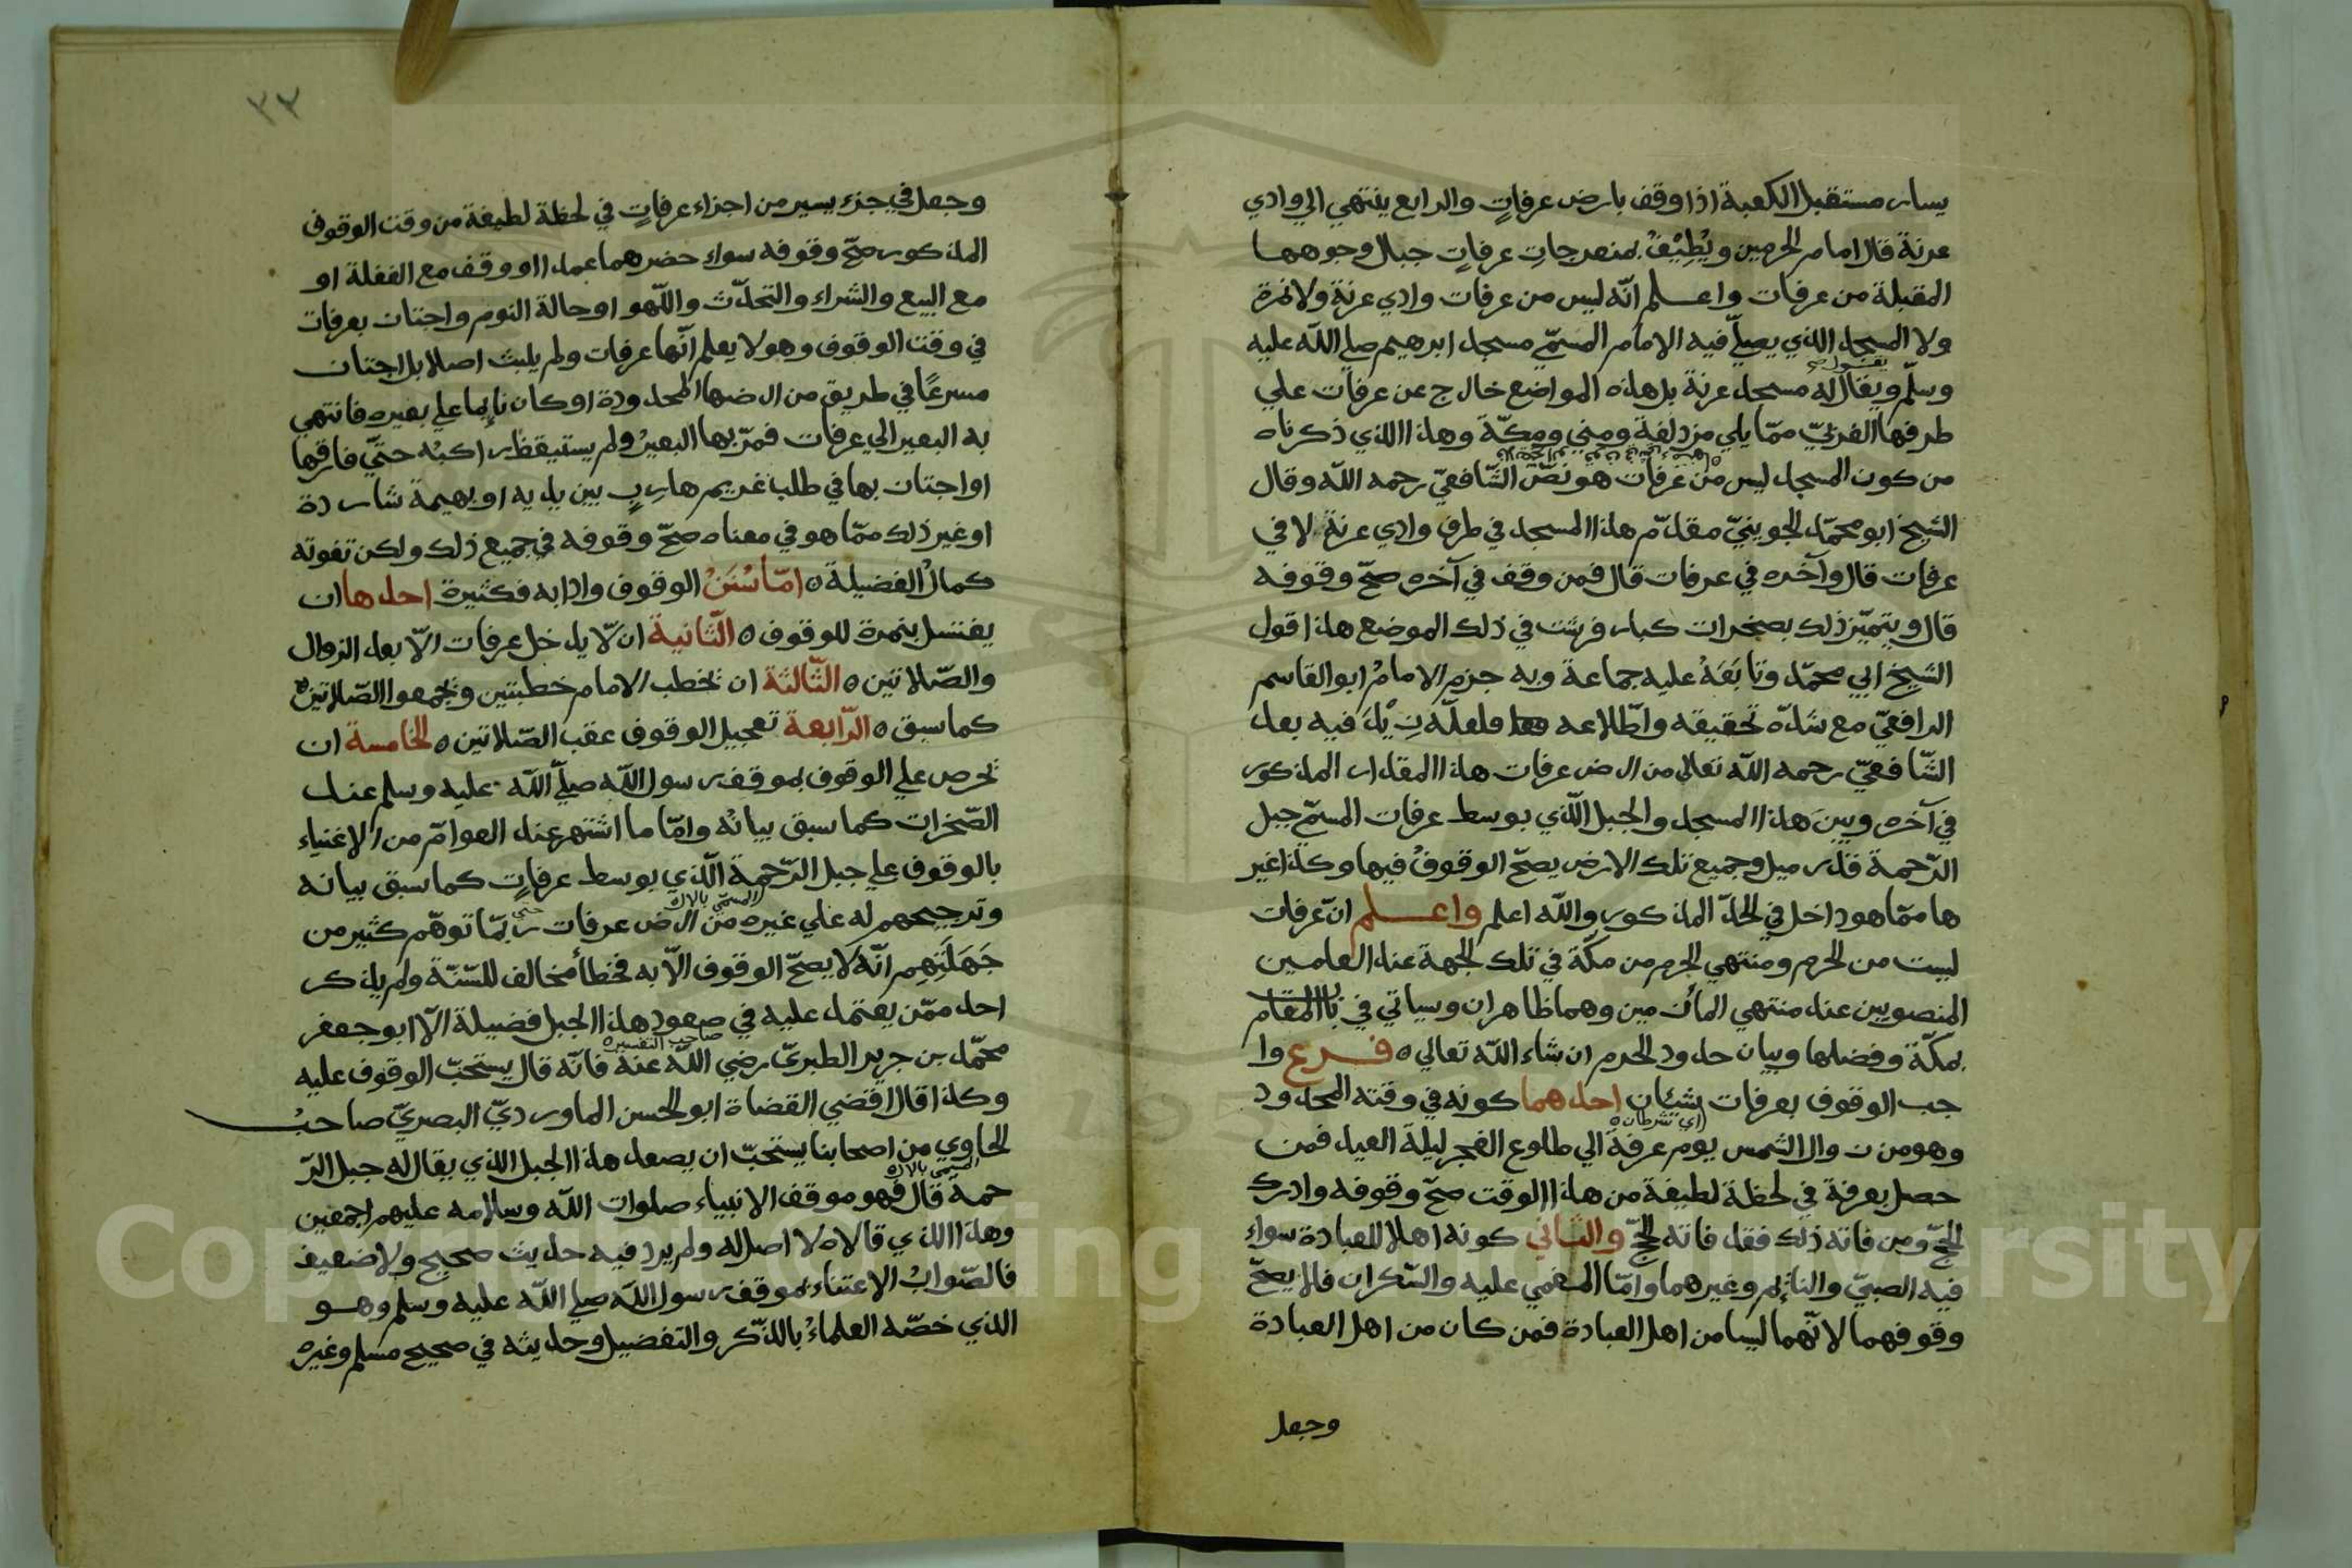 يسار مستقبل الكعبة اذا وقف بارض عرفاتٍ والرابع ينتهي الي وادي
عرنة قال امام الحرمين ويُطِيْفُ بمنعرجاتِ عرفاتٍ جبال وجوهها
المقبلة من عرفات واعلم انّه ليس من عرفات وادي عرنة ولا نمرة
ولا المسجد الذي يصلّي فيه الامام المسمّي مسجد ابرهيم صلي اللّه عليه
وسلّم ويقال له مسجد عرنة بل هذه المواضع خارج عن عرفات علي
طرفها الغربيّ ممّا يلي مزدلفة ومني ومكّة وهذا الذي ذكرناه
من كون المسجد ليس من عرفات هو نصّ الشّافعيّ رحمه اللّه وقال
الشيخ ابو محمّد الجوينيّ مقدّم هذا المسجد في طرف وادي عرنة لا في
عرفات قال وآخره في عرفات قال فمن وقف في آخره صحّ وقوفه
قال ويتميّز ذلك بصخرات كبار فرشت في ذلك الموضع هذا قول
الشيخ ابي محمّد وتابَعَهُ عليه جماعة وبه جزم الامامُ ابو القاسم
الرافعيّ مع شدّة تحقيقه واطّلاعه فلعلّه زِيْدَ فيه بعد
الشّافعيّ رحمه اللّه تعالي من ارض عرفات هذا المقدار المذكور
في آخره وبينَ هذا المسجد والجبل الّذي بوسط عرفات المسمّي جبل
الرّحمة قدر ميل وجميع تلك الارض يصحّ الوقوفُ فيها وكذا غير
ها ممّا هو داخل في الحدّ المذكور واللّه اعلم واعلم انّ عرفات
ليست من الحرم ومنتهي الحرم من مكّة في تلك الجهة عند العلمين
المنصوبين عند منتهي المأزمين وهما ظاهران وسياتي في باب المقام
بمكّة وفضلها وبيان حدود الحرم ان شاء اللّه تعالي ه فرع وا
جب الوقوف بعرفات شيئان احدهما كونه في وقته المحدود
اي شرطان
وهو من زوال الشمس يوم عرفة الي طلوع الفجر ليلة العيد فمن
حصل بعرفة في لحظة لطيفة من هذا الوقت صحّ وقوفه وادرك
الحجّ ومن فاته ذلك فقد فاته الحجّ والثاني كونه اهلا للعبادة سواء
فيه الصبيّ والنائم وغيرهما وامّا المغمي عليه والسّكران فلا يصحّ
وقوفهما لانّهما ليسا من اهل العبادة فمن كان من اهل العبادة
وجعل
٢٣
وجعل في جزء يسير من اجزاء عرفاتٍ في لحظة لطيفة من وقت الوقوف
المذكور صحّ وقوفه سواء حضرهما عمدا او وقف مع الغفلة او
مع البيع والشراء والتحدّث واللّهو او حالة النوم واجتاز بعرفات
في وقت الوقوف وهو لا يعلم انّها عرفات ولم يلبث اصلا بل اجتاز
مسرعًا في طريق من ارضها المحدودة او كان نائما علي بعيره فانتهي
به البعير الي عرفات فمرّ بها البعيرُ ولم يستيقظ راكبُه حتّي فارقها
او اجتاز بها في طلب غريم هاربٍ بين يديه او بهيمة شاردة
او غير ذلك ممّا هو في معناه صحّ وقوفه في جميع ذلك ولكن تفوته
كمالُ الفضيلة ه امّا سُنَنُ الوقوف وادابه فكثيرة احدها ان
يغتسل بنمرة للوقوف ه الثّانية ان لّا يدخل عرفات الّا بعد الزوال
والصّلاتين ه الثّالثة ان تخطب الامام خطبتين وتجمعوا الصّلاتين
كما سبق ه الرّابعة تعجيل الوقوف عقب الصّلاتين ه الخامسة ان
تحرص علي الوقوف بموقف رسول اللّه صلّي اللّه عليه وسلم عند
الصّخرات كما سبق بيانُه وامّا ما اشتهر عند العوامّ من الاغنياء
بالوقوف علي جبل الرّحمة الّذي بوسط عرفاتٍ كما سبق بيانه
وترجيحهم له علي غيره من ارض عرفات حتي ربّما توهّم كثير من
جَهَلَتِهِم انّه لا يصحّ الوقوف الّا به فخطأ مخالف للسّنّة ولم يذكر
احد ممّن يعتمد عليه في صعود هذا الجبل فضيلة الّا ابو جعفر
صاحب التفسير
محمّد بن جرير الطبريّ رضي اللّه عنه فانّه قال يستحبّ الوقوف عليه
وكذا قال اقضي القضاة ابو الحسن الماورديّ البصريّ صاحبُ
الحاوي من اصحابنا يستحبّ ان يصعد هذا الجبل الذي يقال له جبل الرّ
حمة قال فهو موقف الانبياء صلوات اللّه وسلامه عليهم اجمعين
وهذا الذي قالاه لا اصل له ولم يرد فيه حديث صحيح ولا ضعيف
فالصّوابُ الاعتناء بموقف رسول اللّه صلي اللّه عليه وسلم وهو
الذي خصّه العلماءُ بالذّكر والتفضيل وحديثه في صحيح مسلم وغيره